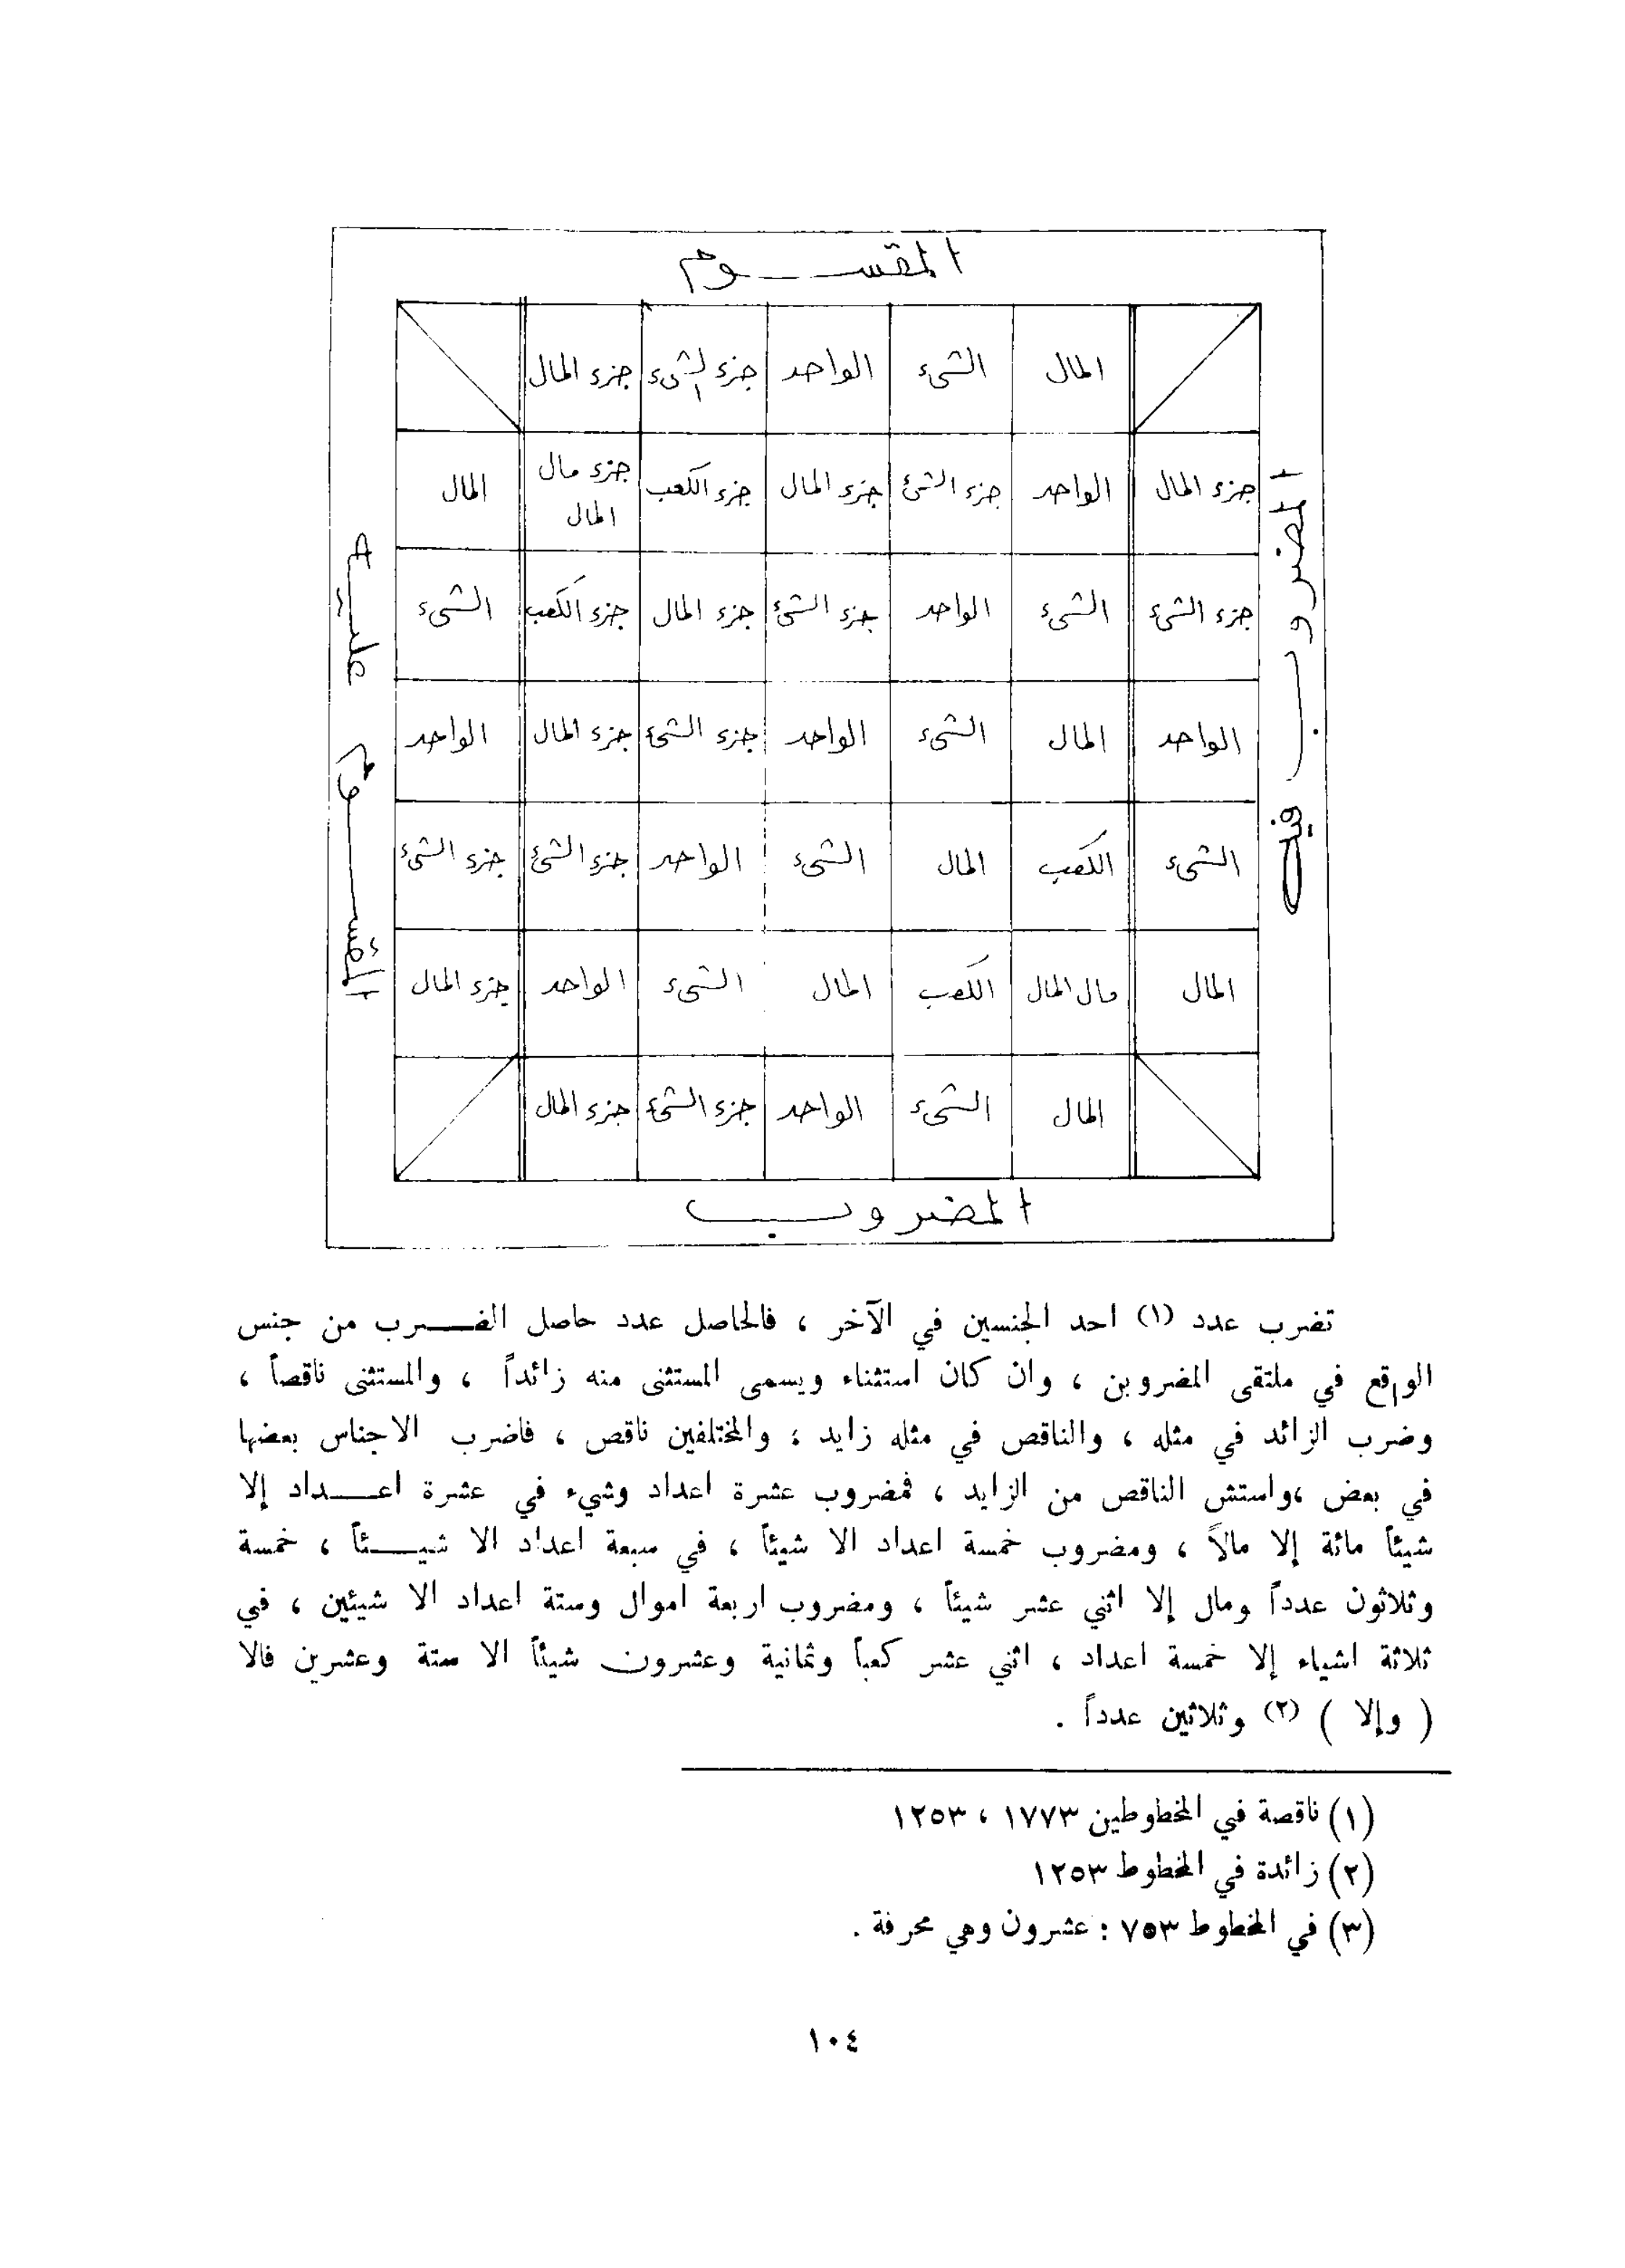 المقسوم
المال الشيء الواحد جزء الشيء جزء المال
جزء المال الواحد جزء الشئ جزء المال جزء الكعب جزء مال المال المال
جزء الشئ الشيء الواحد جزء الشئ جزء المال جزء الكعب الشيء
الواحد المال الشيء الواحد جزء الشئ جزء المال الواحد
الشيء الكعب المال الشيء الواحد جزء الشئ جزء الشئ
المال مال المال الكعب المال الشيء الواحد جزء المال
المال الشيء الواحد جزء الشئ جزء المال
المضروب
المضروب فيه
المقسوم عليه
تضرب عدد (١) احد الجنسين في الآخر ، فالحاصل عدد حاصل الضرب من جنس
الواقع في ملتقى المضروبن ، وان كان استثناء ويسمى المستثنى منه زائداً ، والمستثنى ناقصاً ،
وضرب الزائد في مثله ، والناقص في مثله زايد ؛ والمختلفين ناقص ، فاضرب الاجناس بعضها
في بعض ،واستثن الناقص من الزايد ، فمضروب عشرة اعداد وشيء في عشرة اعداد إلا
شيئاً مائة إلا مالاً ، ومضروب خمسة اعداد الا شيئاً ، في سبعة اعداد الا شيئاً ، خمسة
وثلاثون عدداً ومال إلا اثني عشر شيئاً ، ومضروب اربعة اموال وستة اعداد الا شيئين ، في
ثلاثة اشياء إلا خمسة اعداد ، اثني عشر كعباً وثمانية وعشرون شيئاً الا ستة وعشرين فالا
( وإلا ) (٢) وثلاثين عدداً .
(١) ناقصة في المخطوطين ١٧٧٣ ، ١٢٥٣
(٢) زائدة في المخطوط ١٢٥٣
(٣) في المخطوط ٧٥٣ : عشرون وهي محرفة .
١٠٤